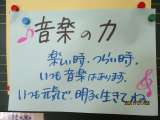 音楽の力
楽しい時、つらい時、
いつも音楽はあります。
いつも元気で、明るく生きてね